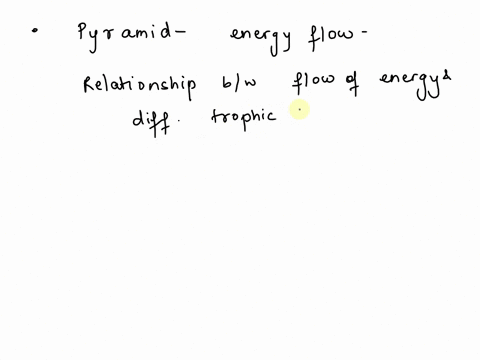 • Pyramid - energy flow -
Relationship b/w flow of energy &
diff. trophic